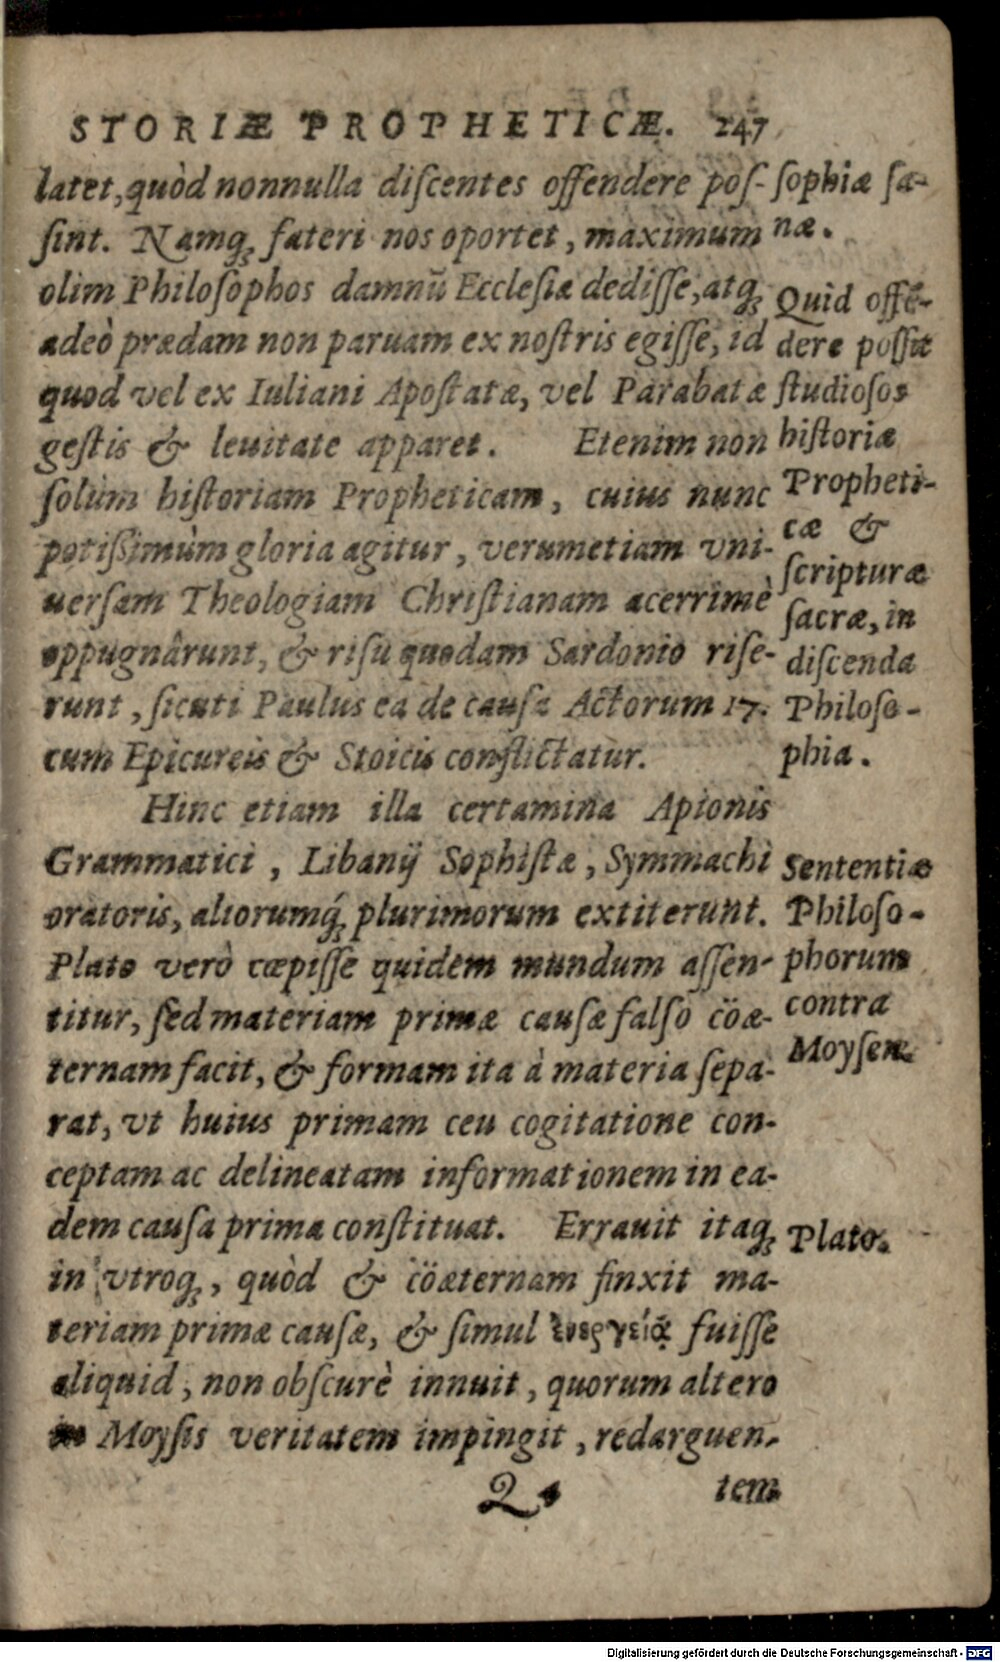 STORIÆ PROPHETICÆ. 247
latet, quòd nonnulla diſcentes offendere poſ-
ſint. Namq́ꝫ fateri nos oportet, maximum
olim Philoſophos damnū Eccleſiæ dediſſe, atqꝫ
adeò prædam non paruam ex noſtris egiſſe, id
quod vel ex Iuliani Apoſtatæ, vel Parabatæ
geſtis & leuitate apparet. Etenim non
ſolùm hiſtoriam Propheticam, cuius nunc
potißimùm gloria agitur, verumetiam vni-
uerſam Theologiam Chriſtianam acerrimè
oppugnârunt, & riſu quodam Sardonio riſe-
runt, ſicuti Paulus ea de cauſa Actorum 17.
cum Epicureis & Stoicis conflictatur.
Hinc etiam illa certamina Apionis
Grammatici, Libanij Sophiſtæ, Symmachi
oratoris, aliorumq́ꝫ plurimorum extiterunt.
Plato verò cœpiſſe quidem mundum aſſen-
titur, ſed materiam primæ cauſæ falſo cöæ-
ternam facit, & formam ita à materia ſepa-
rat, vt huius primam ceu cogitatione con-
ceptam ac delineatam informationem in ea-
dem cauſa prima conſtituat. Errauit itaqꝫ
in vtroqꝫ, quòd & cöæternam finxit ma-
teriam primæ cauſæ, & ſimul ἐνεργείᾳ fuiſſe
aliquid, non obſcurè innuit, quorum altero
in Moyſis veritatem impingit, redarguen-
Q 4 tem
ſophiæ ſa-
næ.
Quid offē-
dere poſſit
ſtudioſos
hiſtoriæ
Propheti-
cæ &
ſcripturæ
ſacræ, in
diſcenda
Philoſo-
phia.
Sententiæ
Philoſo-
phorum
contra
Moyſen.
Plato.
Digitalisierung gefördert durch die Deutsche Forschungsgemeinschaft - DFG